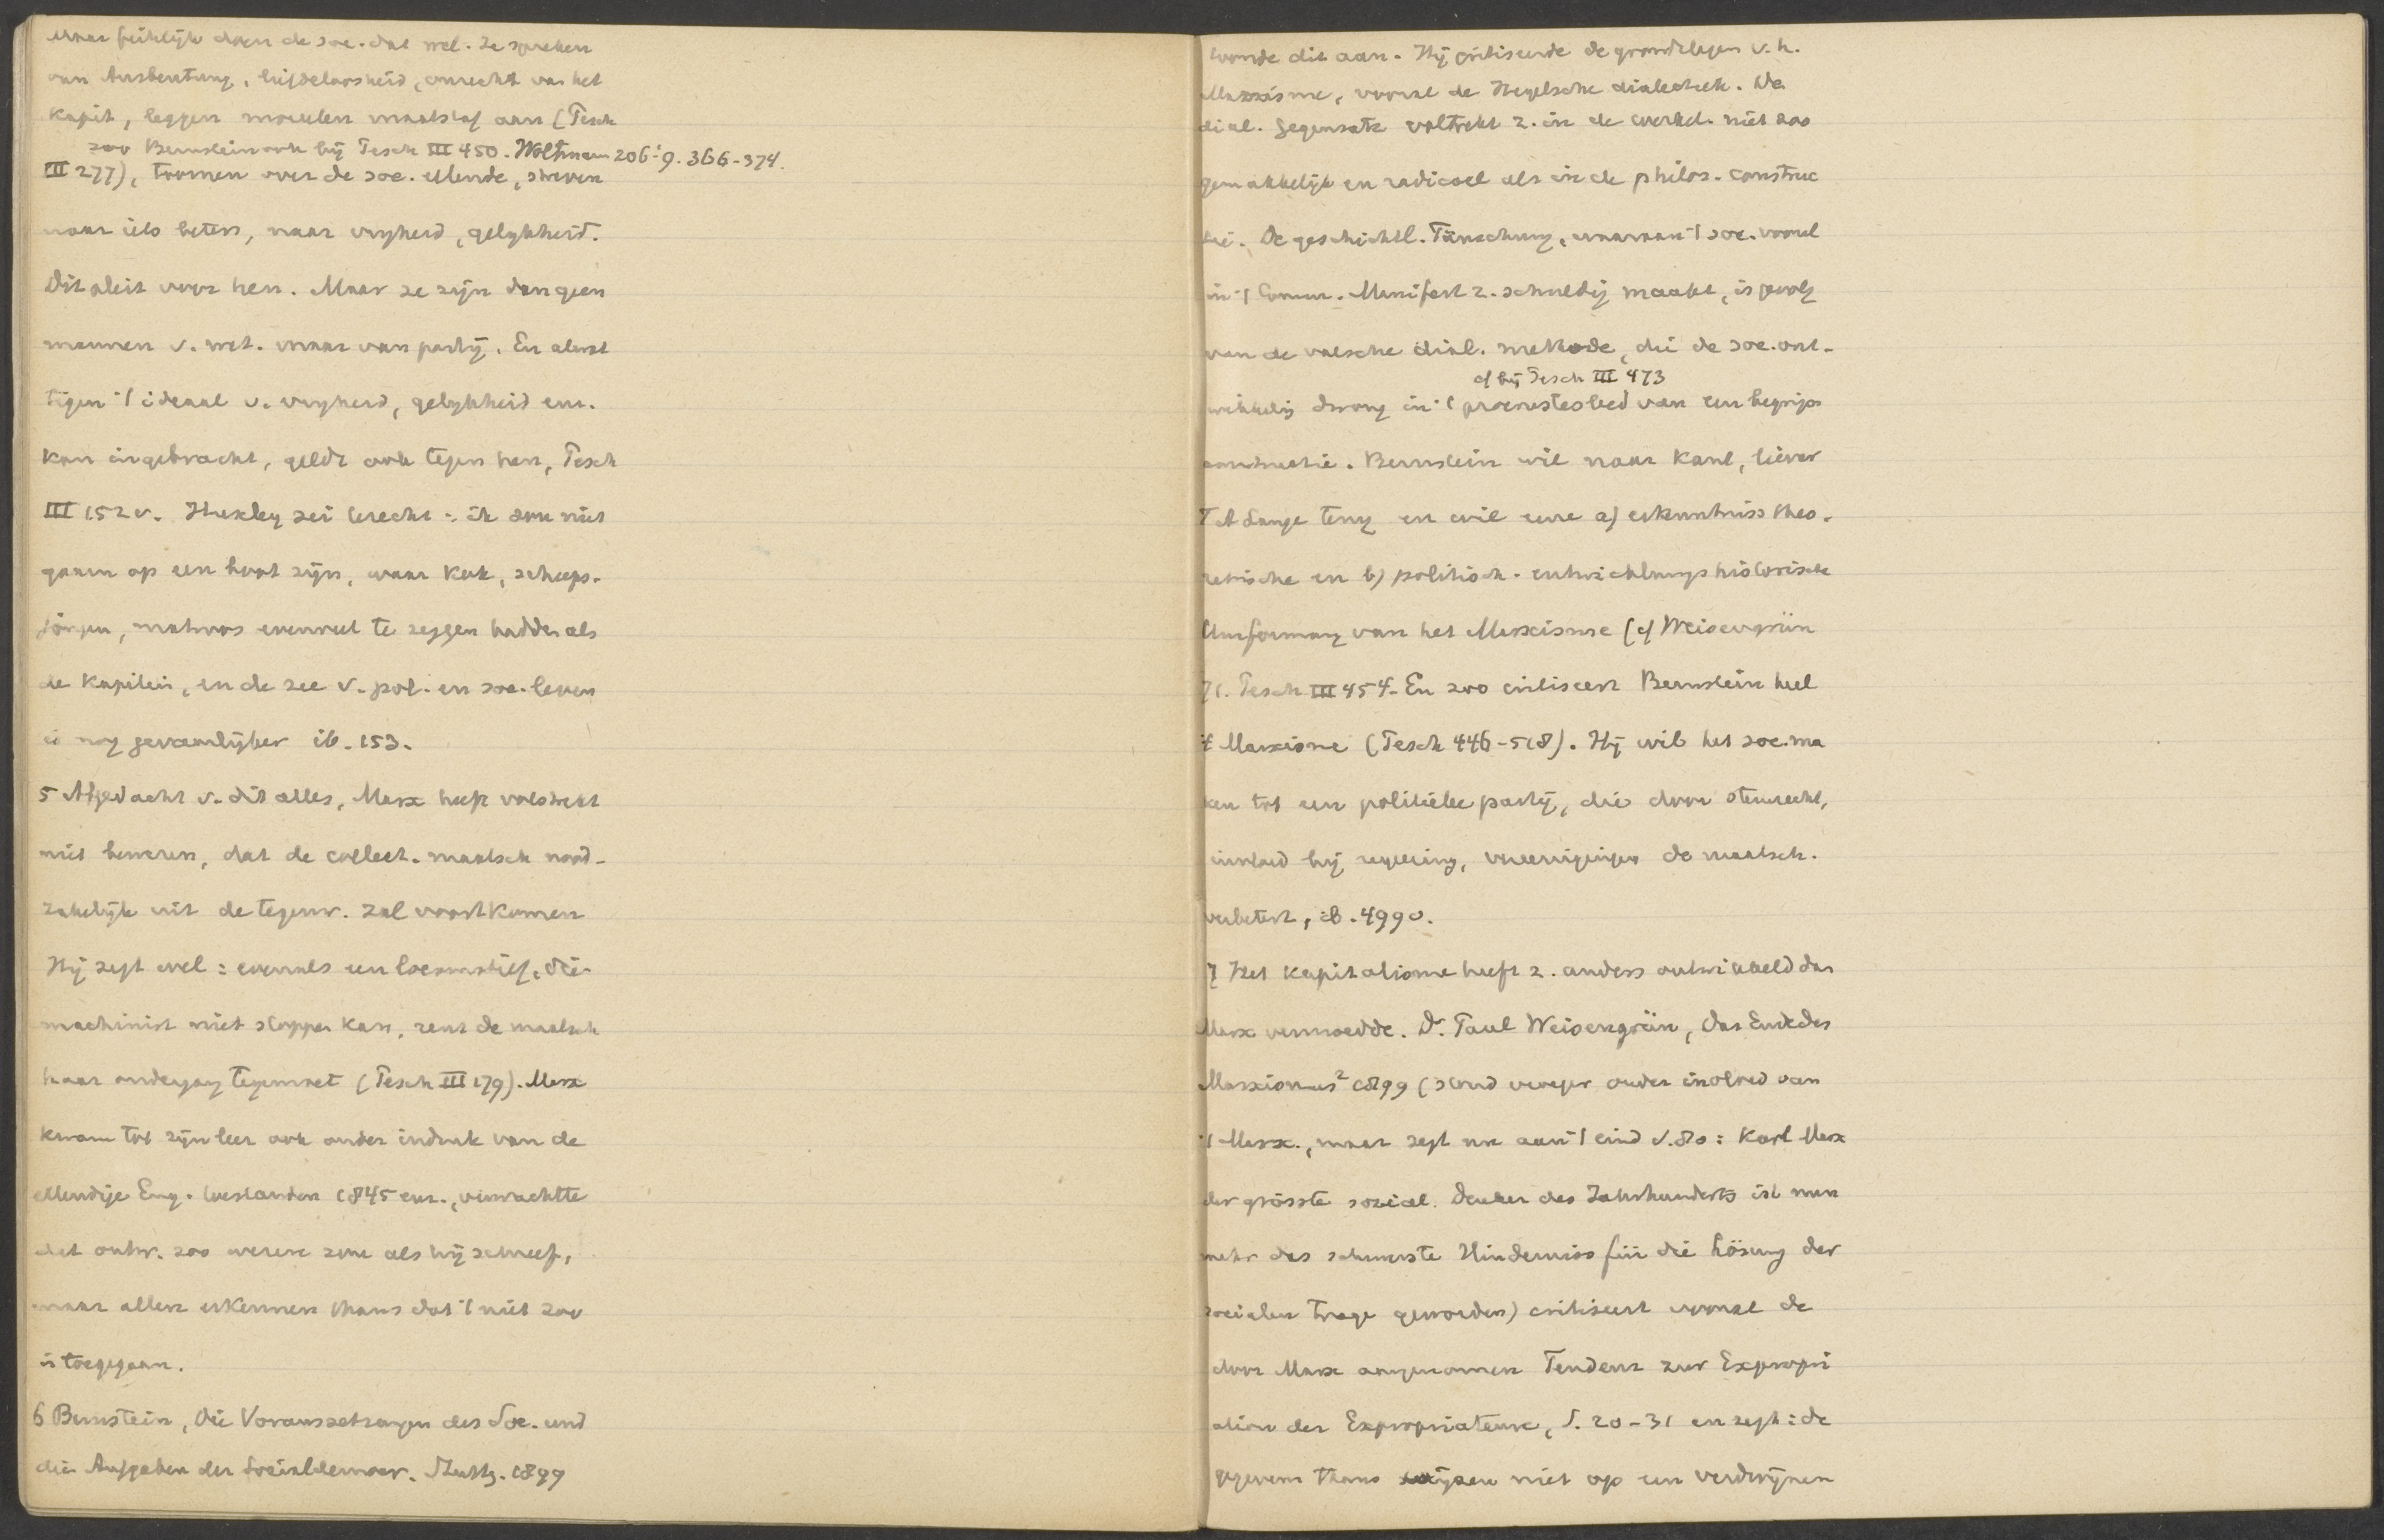 Maar feitelijk doen de soc. dat wel. Ze spreken
van Ausbeutung, liefdeloosheid, onrecht van het
Kapit, leggen moreelen maatstaf aan (Tesch
zoo Bernstein ook bij Tesch III 450. Woltmann 206-'9. 366-374.
III 277), toornen over de soc. ellende, streven
naar iets beters, naar vryheid, gelykheid.
Dit pleit voor hen. Maar ze zijn dan geen
mannen v. wet. maar van partij. En alwat
tegen 't ideaal v. vryheid, gelykheid enz.
kan ingebracht, geldt ook tegen hen, Tesch
III 152 v. Huxley zei terecht: ik zou niet
gaarn op een boot zijn, waar kok, scheeps-
jongen, matroos evenveel te zeggen hadden als
de Kapitein, en de zee v. pol. en soc. leven
is nog gevaarlijker ib. 153.
5 Afgedacht v. dit alles, Marx heeft volstrekt
niet bewezen, dat de collect. maatsch nood-
zakelijk uit de tegenw. zal voortkomen
Hij zegt wel: evenals een locomotief, die
machinist niet stoppen kan, rent de maatsch
haar ondergang tegemoet (Tesch III 179). Marx
kwam tot zijn leer ook onder indruk van de
ellendige Eng. toestanden 1845 enz., verwachtte
dat ontw. zoo wezen zou als hij schreef,
maar allen erkennen thans dat 't niet zoo
is toegegaan.
6 Bernstein, Die Voraussetzungen des Soc. und
die Aufgaben der Socialdemocr. Stuttg. 1899
toonde dit aan. Hij critiseerde de grondslagen v. h.
Marxisme, vooral de Hegelsche dialectiek. De
dial. Gegensatz voltrekt z. in de werkel. niet zoo
gemakkelijk en radicaal als in de philos. construc
tie. De geschichtl. Täuschung, waaraan 't soc. vooral
in 't Commun. Manifest z. schuldig maakt, is gevolg
van de valsche dial. methode, die de soc. ont-
cf bij Tesch III 473
wikkeling dwong in 't procrustesbed van een begrips
constructie. Bernstein wil naar Kant, liever
F A Lange terug en wil eene a) erkenntniss theo-
retische en b) politisch-entwicklungshistorische
Umformung van het Marxisme (cf Weisengrün
71. Tesch III 454. En zoo critiseert Bernstein heel
't Marxisme (Tesch 446-518). Hij wil het soc. ma
ken tot een politieke partij, die door stemrecht,
invloed bij regeering, vereenigingen de maatsch.
verbetert, ib. 499 v.
7 Het Kapitalisme heeft z. anders ontwikkeld dan
Marx vermoedde. Dr. Paul Weisengrün, Das Ende des
Marxismus² 1899 (stond vroeger onder invloed van
't Marx., maar zegt nu aan 't eind S. 80: Karl Marx
der grösste social. Denker des Jahrhunderts ist nun
mehr das schwerste Hinderniss für die Lösung der
socialen Frage geworden) critiseert vooral de
door Marx aangenomen Tendenz zur Expropri
ation der Expropriateure, S. 20-31 en zegt: de
gegevens thans wijzen niet op een verdwijnen